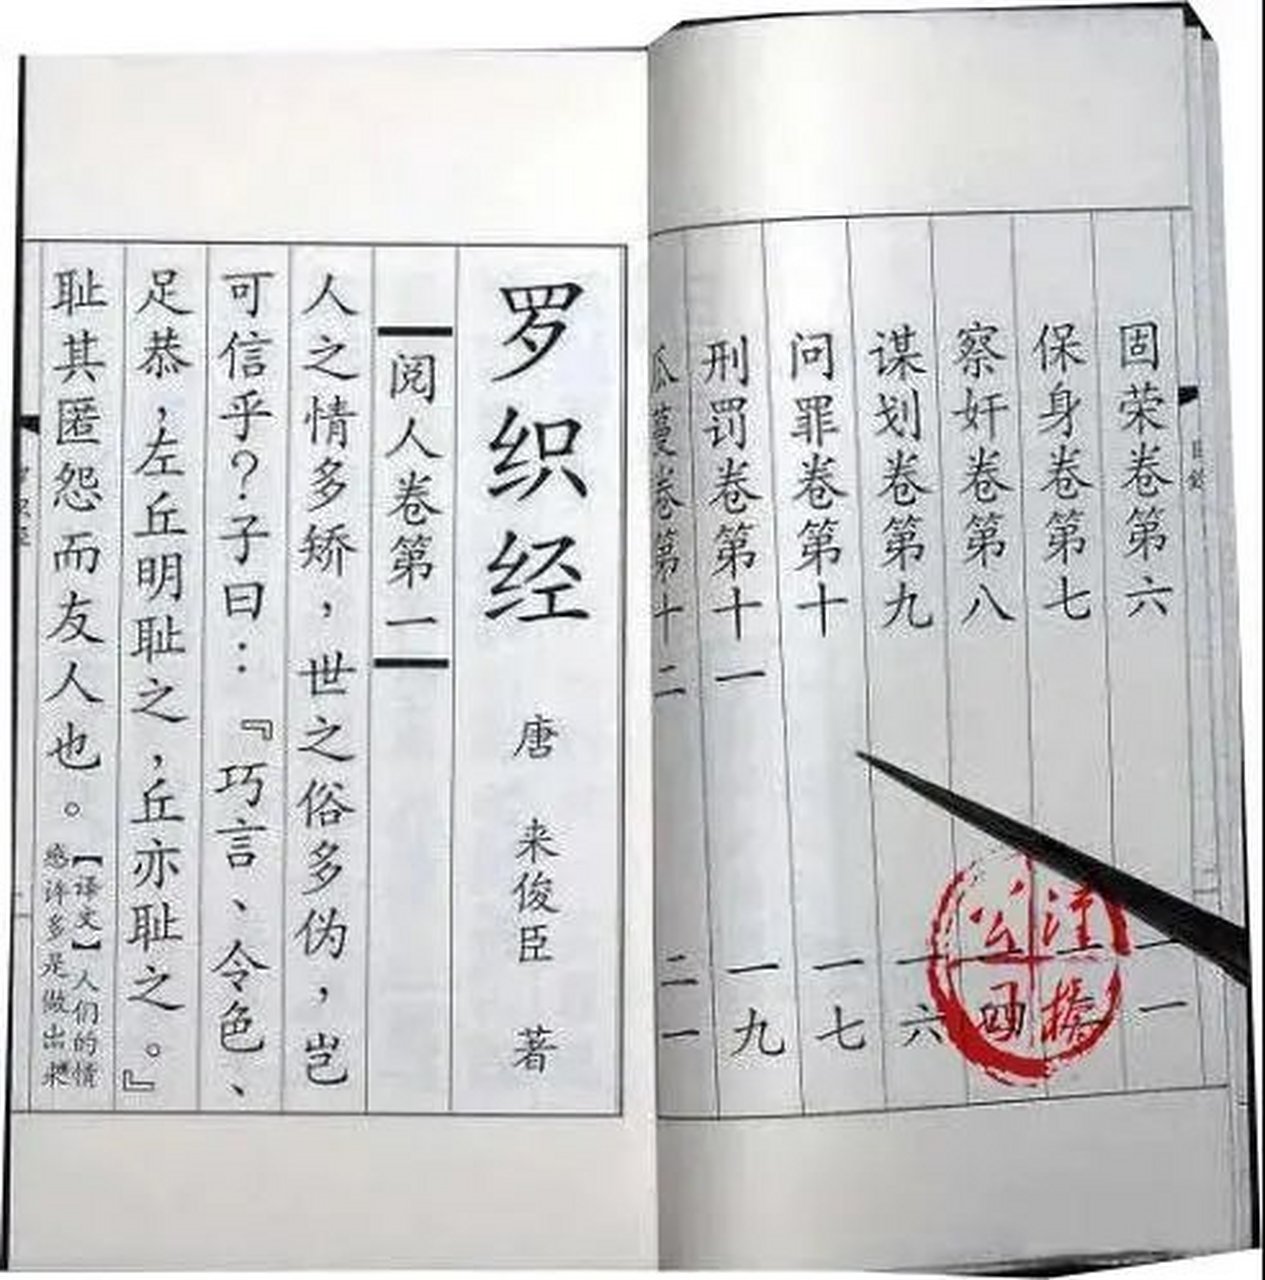 目录
固荣卷第六 一一
保身卷第七
察奸卷第八 一四
谋划卷第九 一六
问罪卷第十 一七
刑罚卷第十一 一九
瓜蔓卷第十二 二一
罗织经 唐 来俊臣 著
阅人卷第一
人之情多矫，世之俗多伪，岂
可信乎？子曰：『巧言、令色、
足恭，左丘明耻之，丘亦耻之。』
耻其匿怨而友人也。
【译文】人们的情
感许多是做出来